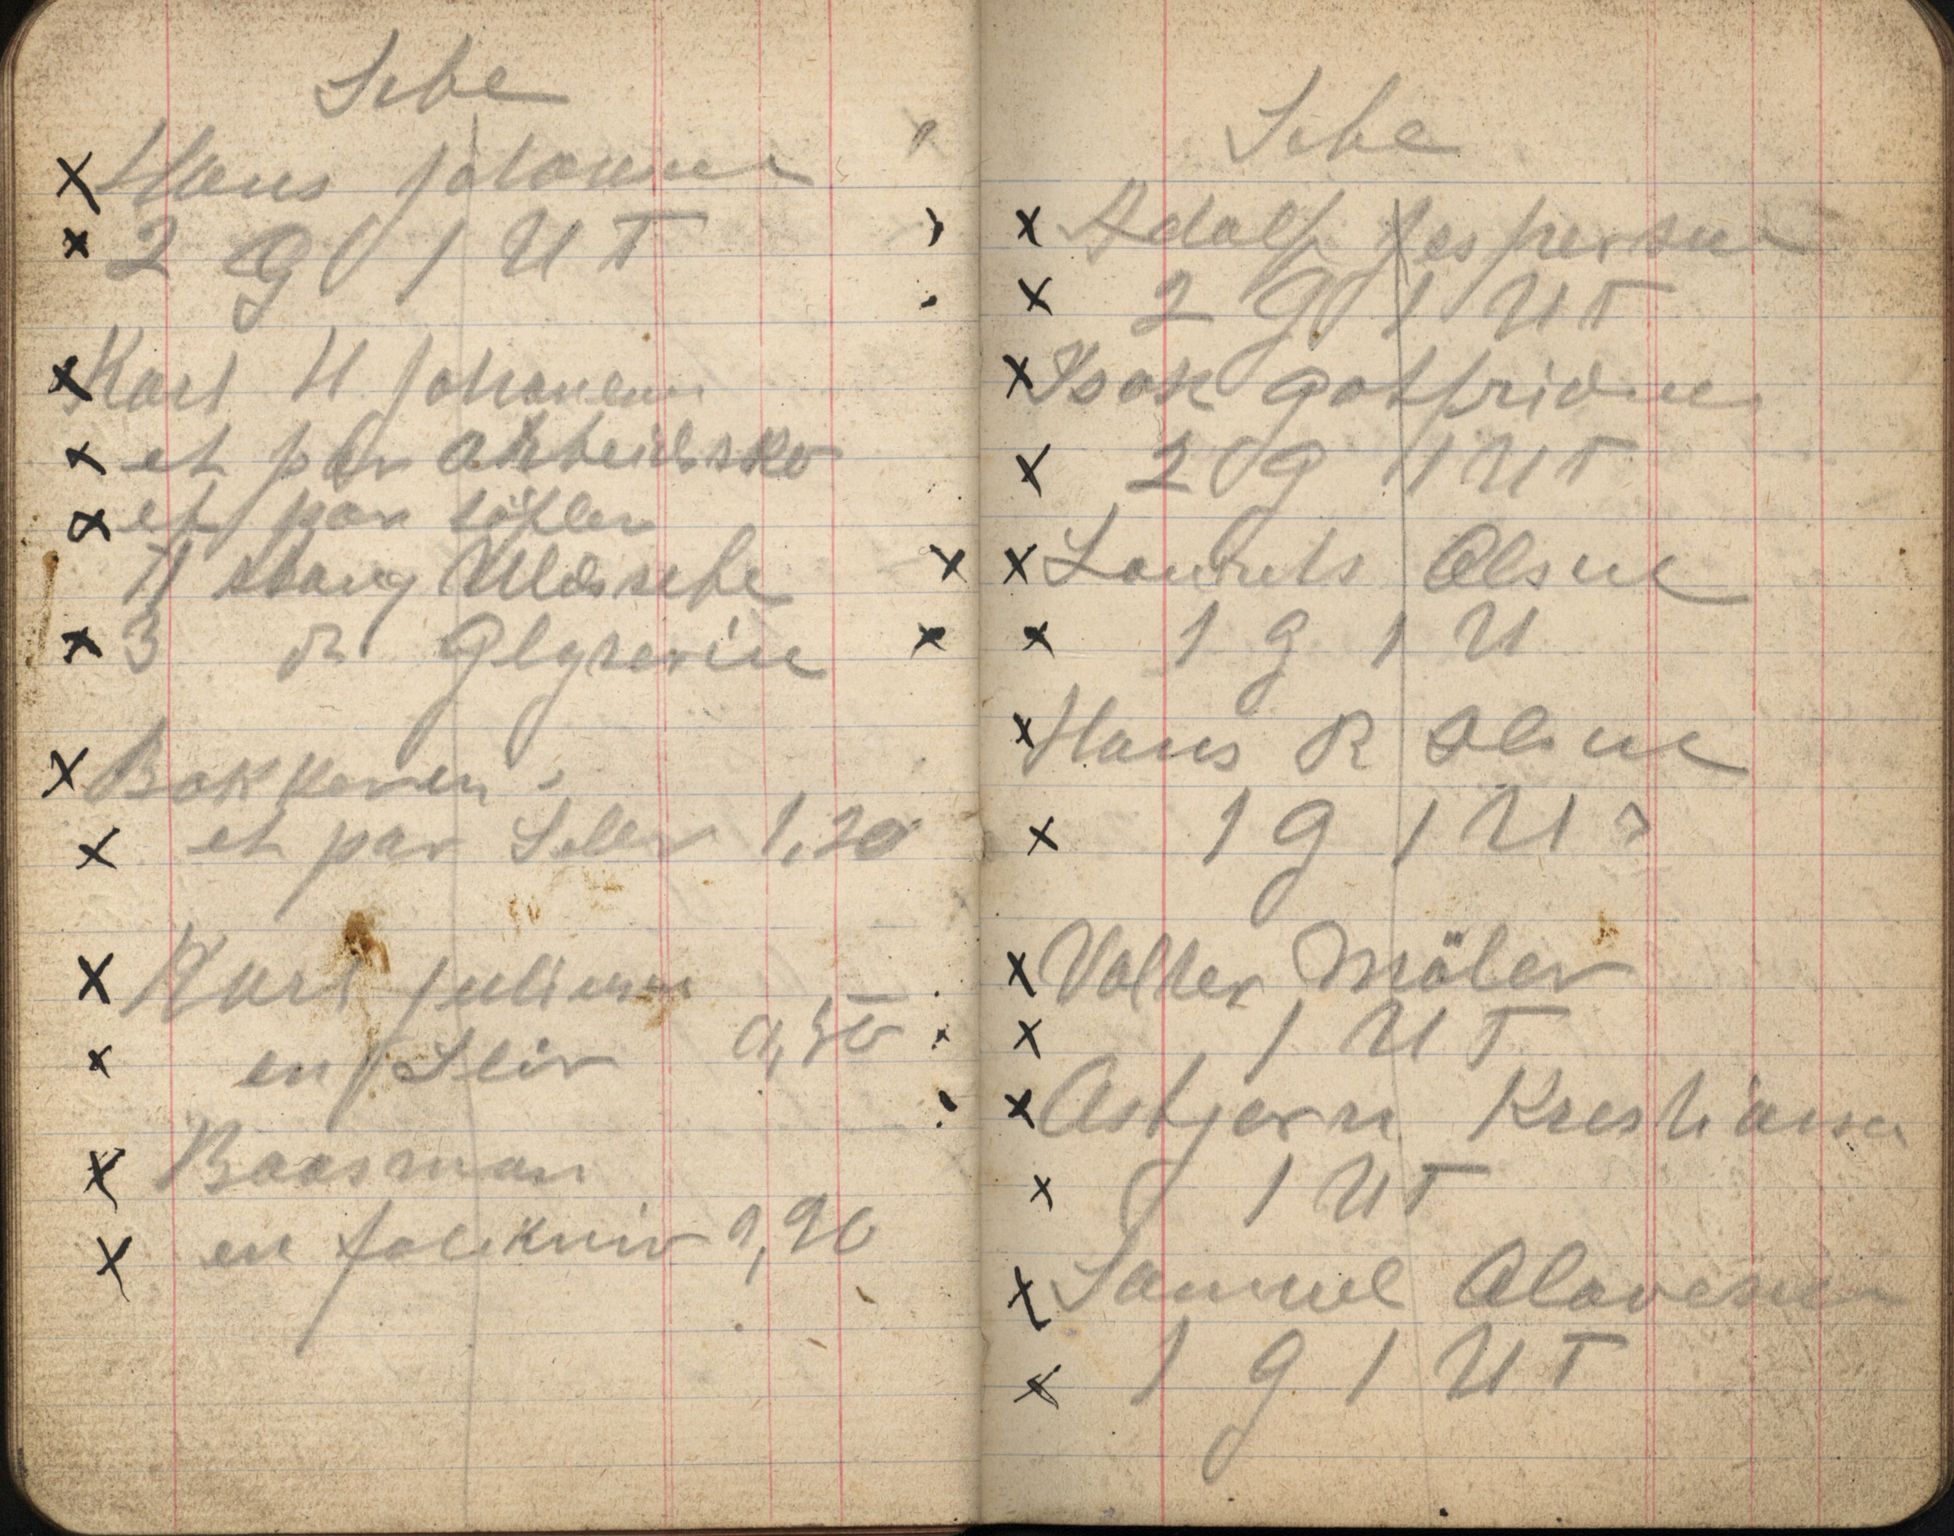 Sebe
x Hans Johanne
x 2 G 1 U T
x Karl H Johansen
x et par arbeidsko
x et par töfler
11 stang Uldssebe
x 3 Glyserin
x Bakkeven
x et par Seler 1,20
x Karl Julius
x en Sleiv 0,50
x Baasman
x en folekniv 0,90
Sebe
x Adolf Jespersen
x 2 G 1 U T
x Isak Gotfridsen
x 2 G 1 U T
x Laurits Olsen
x 1 G 1 U
x Hans R Olsen
x 1 G 1 U
x Valter Möler
x 1 U T
x Asbjern Krestiansen
x 1 U T
x Samuel Olavesen
x 1 G 1 U T